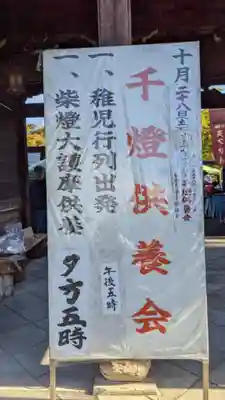 十月二十八日
千燈供養会
一、稚児行列出発
午後五時
一、柴燈大護摩供養
夕方五時